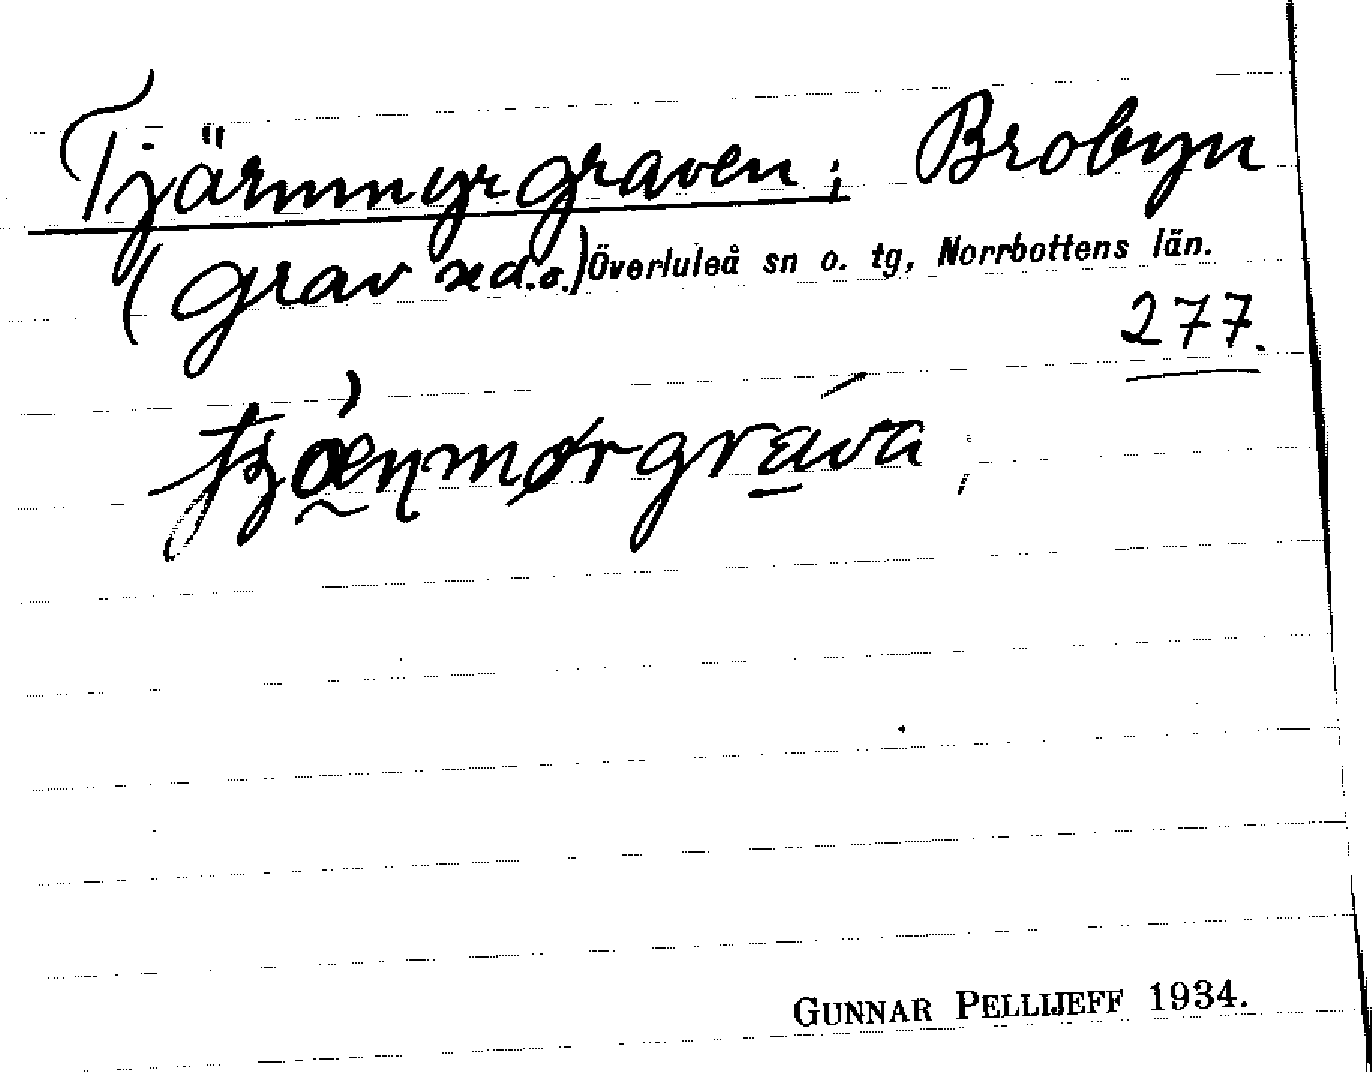 Tjärnmyrgraven; Brobyn
(grav ned.o.) Överluleå sn o. tg, Norrbottens län.
277.
GUNNAR PELLIJEFF 1934.